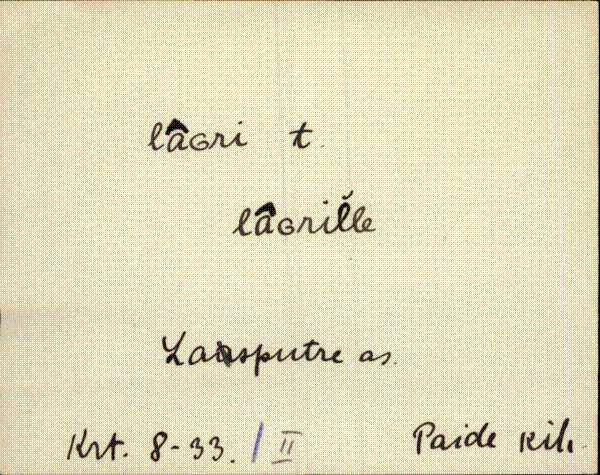 lâɢri t.
lâɢril̆le
Laasputre as.
Krt. 8-33. / II
Paide kih.